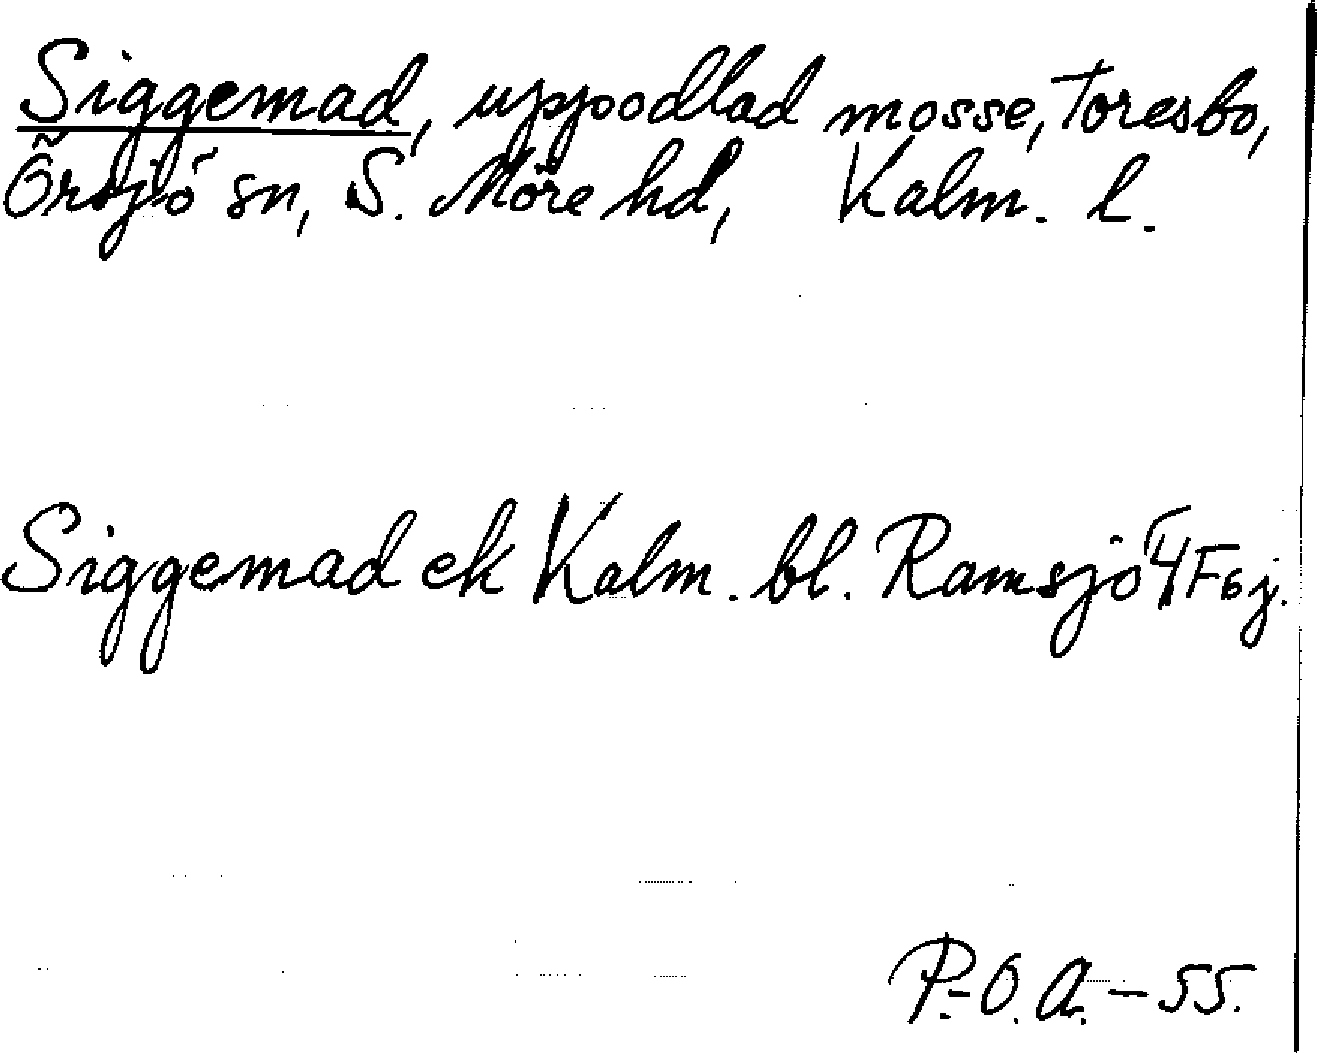 Siggemad, uppodlad mosse, Toresbo,
Örsjö sn, S. Möre hd, Kalm. l.
Siggemad ek Kalm. bl. Ramsjö 4F6j.
P.-O. A. – 55.